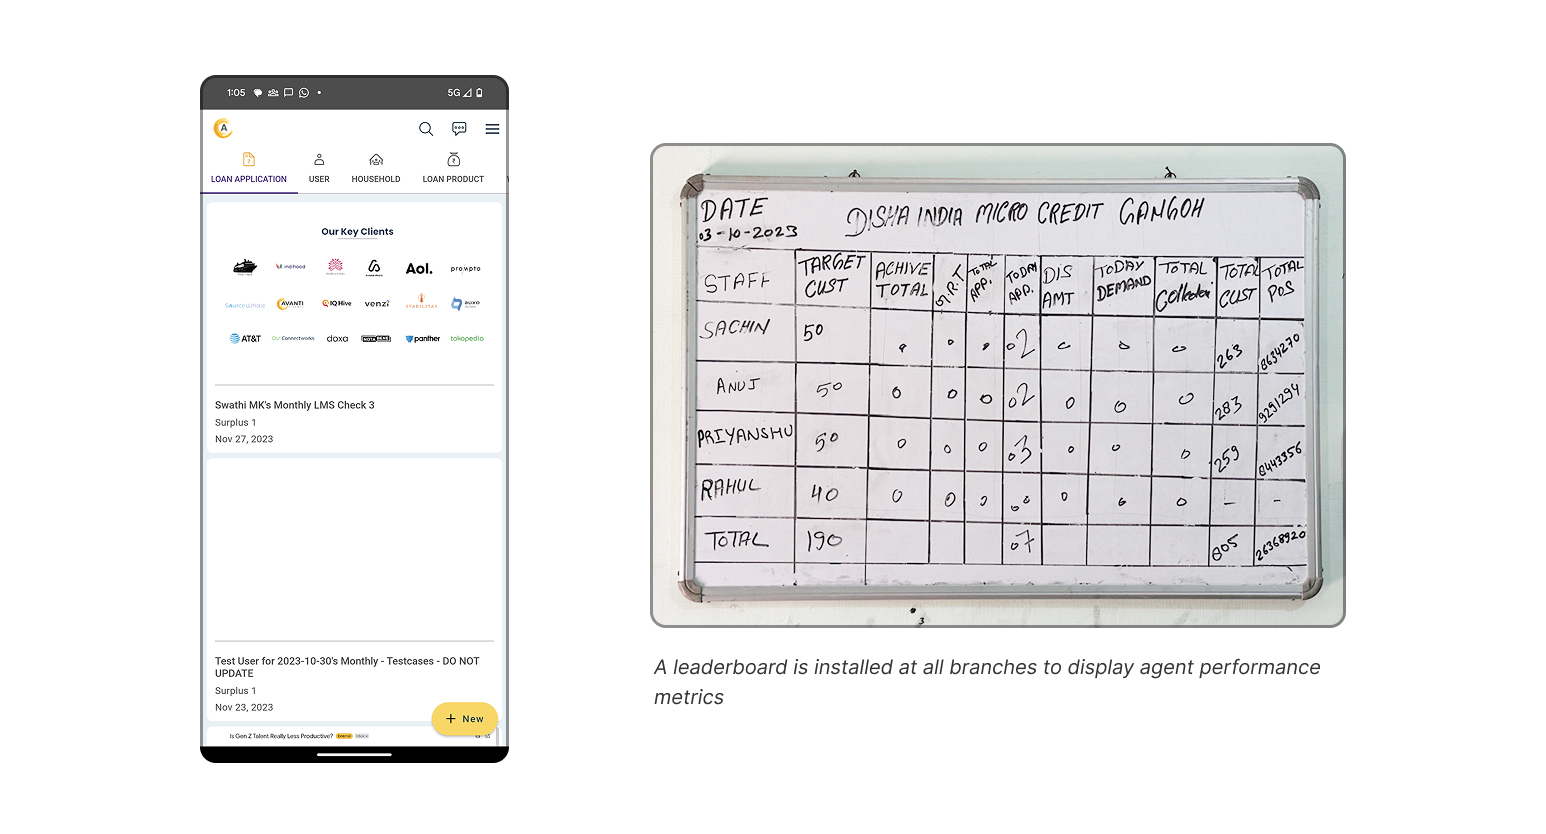 1:05
5G
A
LOAN APPLICATION USER HOUSEHOLD LOAN PRODUCT
Our Key Clients
Aol. prompto
AVANTI IQ Hive venzi STABILITAS auxo
AT&T Connectworks doxa panther tokopedia
Swathi MK's Monthly LMS Check 3
Surplus 1
Nov 27, 2023
Test User for 2023-10-30's Monthly - Testcases - DO NOT
UPDATE
Surplus 1
Nov 23, 2023
+ New
Is Gen Z Talent Really Less Productive?
DATE DISHA INDIA MICRO CREDIT GANGOH
03-10-2023
STAFF TARGET CUST ACHIVE TOTAL G.R.T TOTAL APP. TODAY APP. DIS AMT TODAY DEMAND TOTAL Collection TOTAL CUST TOTAL POS
SACHIN 50 0 0 0 02 0 0 0 263 8634270
ANUJ 50 0 0 0 02 0 0 0 283 9291294
PRIYANSHU 50 0 0 0 03 0 0 0 259 8443356
RAHUL 40 0 0 0 00 0 0 0 - -
TOTAL 190 07 805 26368920
3
A leaderboard is installed at all branches to display agent performance
metrics